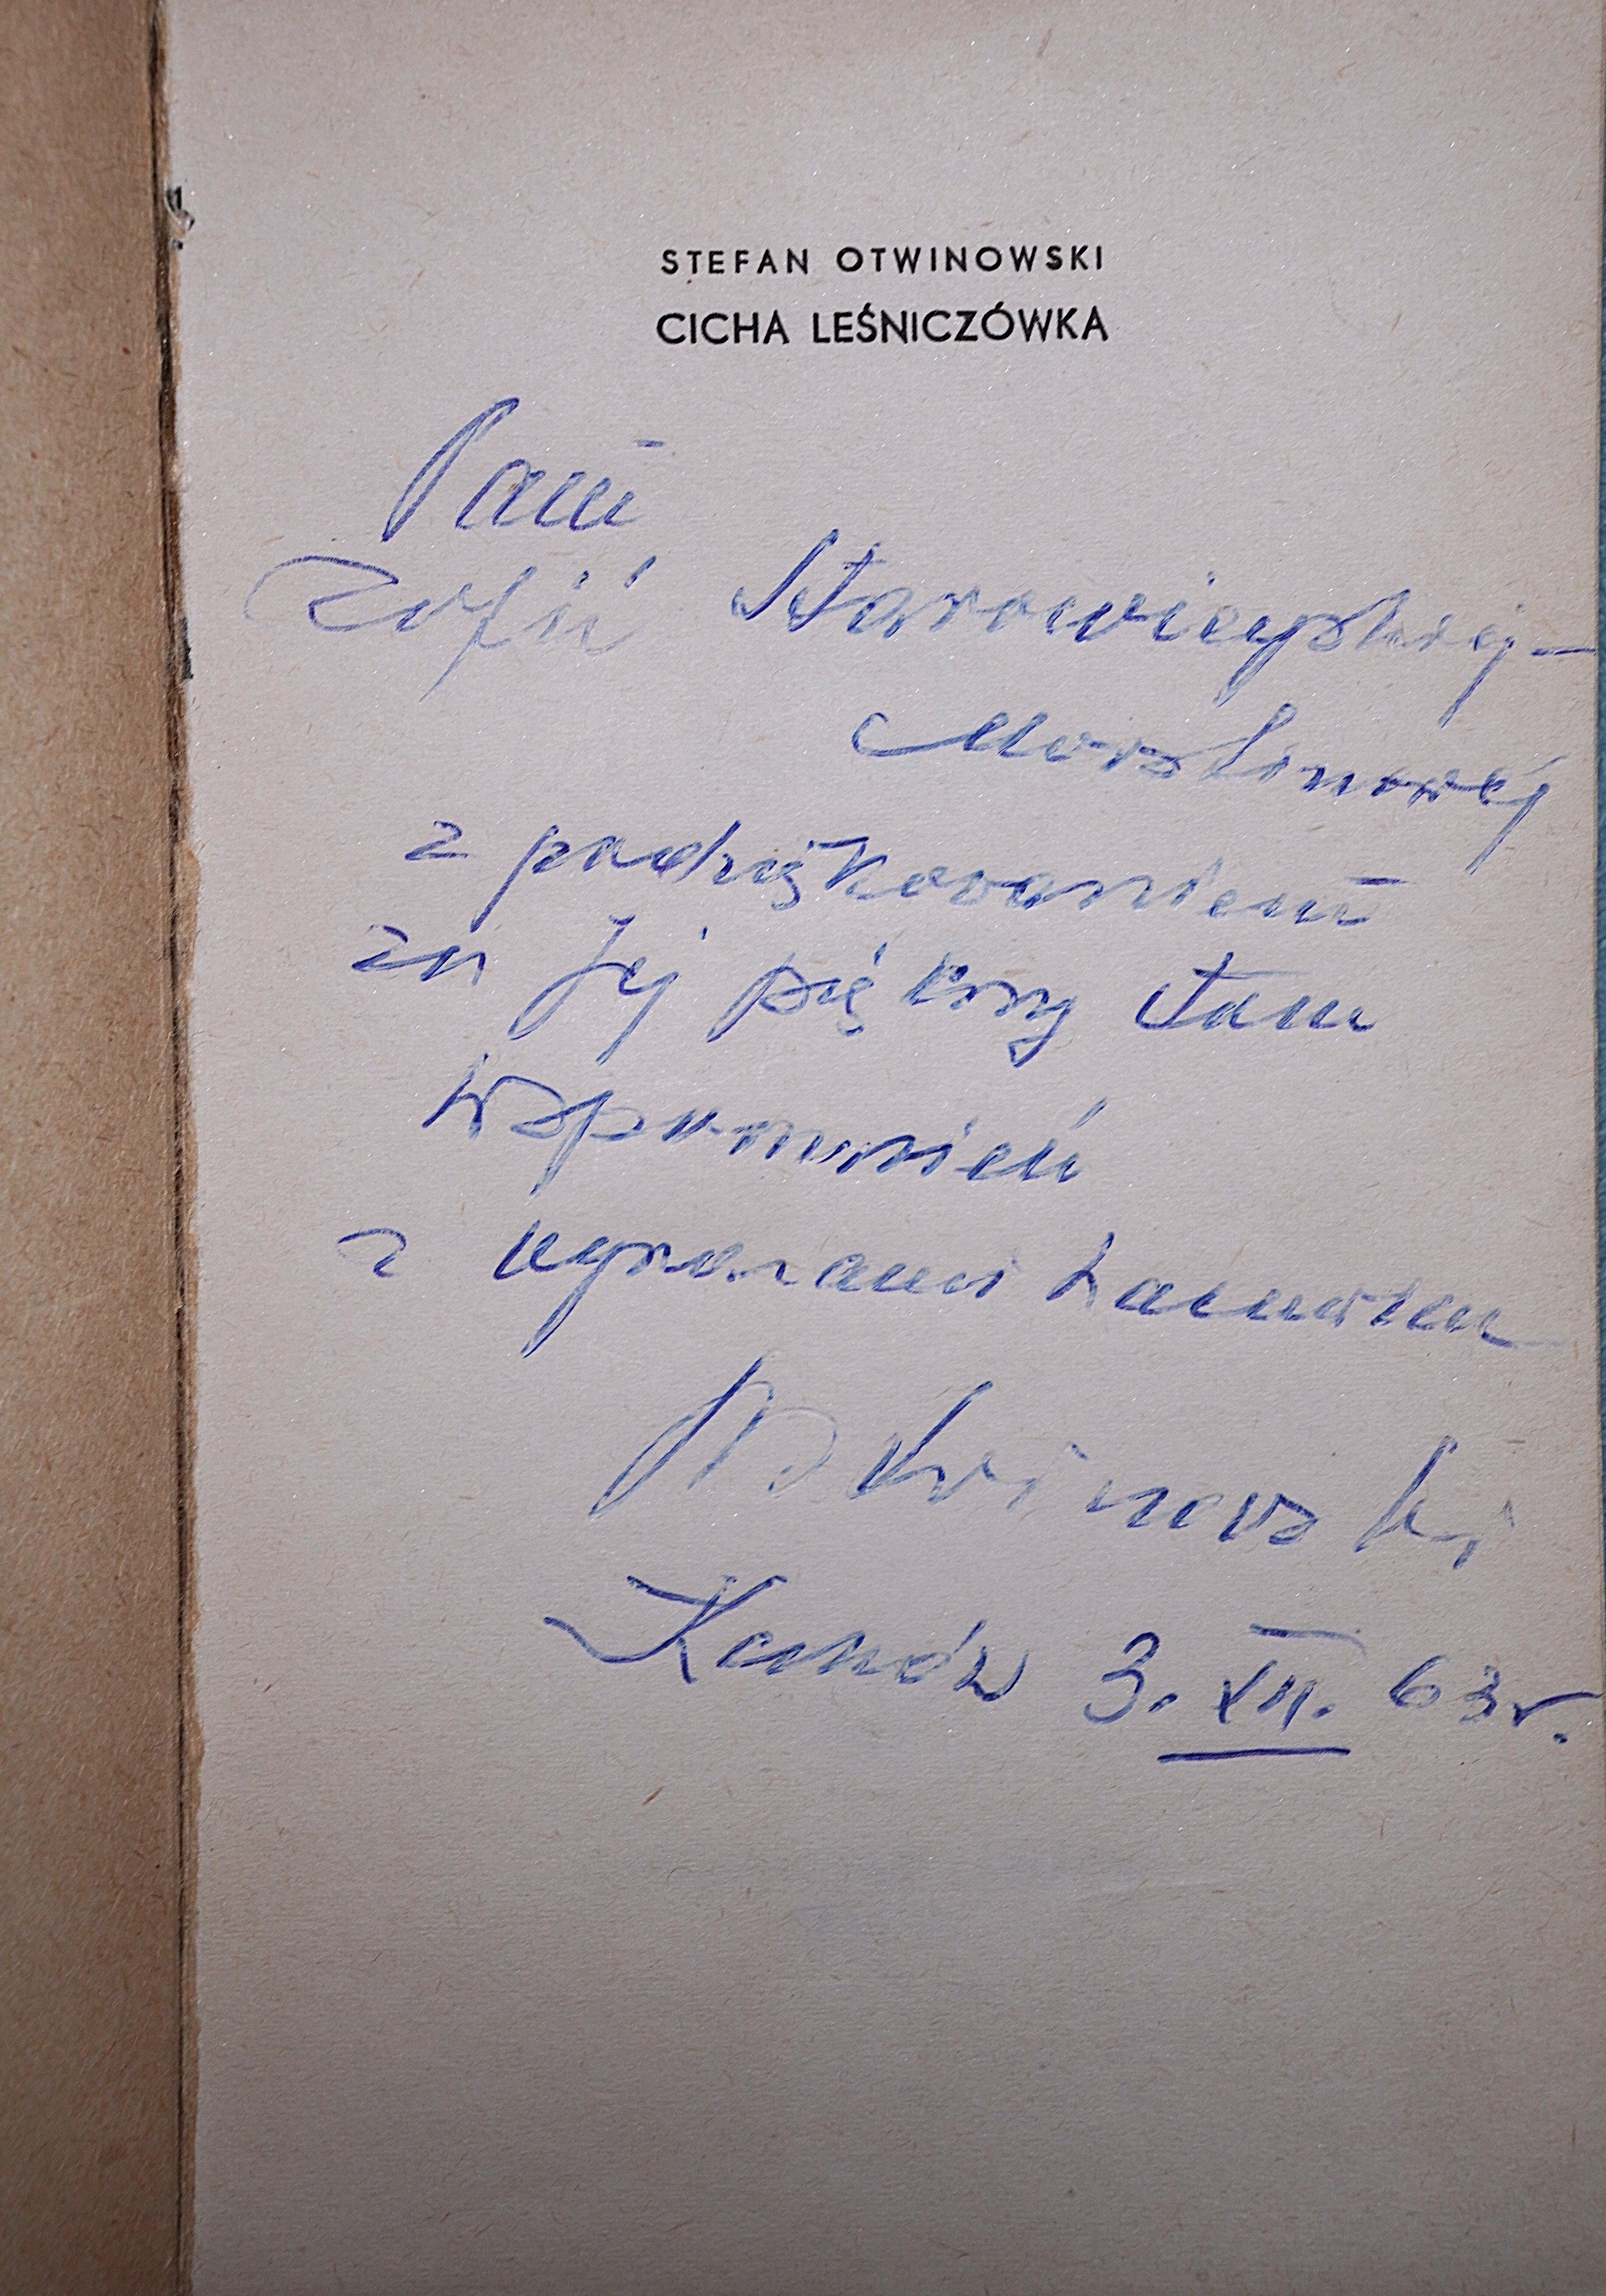 STEFAN OTWINOWSKI
CICHA LEŚNICZÓWKA
Pani
Zofii Starowieyskiej-
Morstinowej
z podziękowaniem
za Jej piękny tom
wspomnień
z wyrazami
Otwinowski
Kraków 3. XII. 63 r.